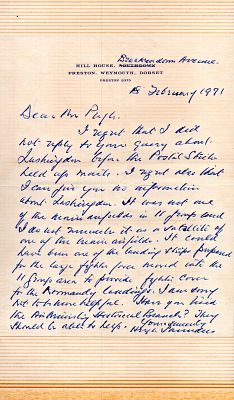 Brackendown Avenue.
HILL HOUSE, SOUTHDOWN
PRESTON, WEYMOUTH, DORSET
PRESTON
15 February 1971
Dear Mr Pugh,
I regret that I did
not reply to your query about
Lashingdon before the Postal Strike
held up mails. I regret also that
I can give you no information
about Lashingdon. It was not one
of the main airfields in 11 Group and
I do not remember it as a satellite of
one of the main airfields. It could
have been one of the landing strips prepared
for the large fighter force moved into the
11 Group area to provide fighter cover
for the Normandy landings. I am sorry
not to be more helpful. Have you tried
the Air Ministry Historical Branch? They
should be able to help. Yours sincerely
Hugh Saunders